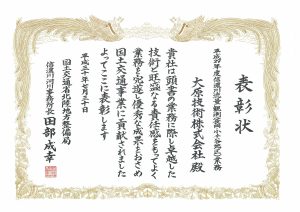 表彰状
平成29年度信濃川水文観測(小千谷地区)業務
大原技術株式会社 殿
貴社は頭書の業務に際し卓越した
技術と旺盛なる責任感をもってよく
業務を完遂し優秀な成果をおさめ
国土交通事業に貢献されました
よってここに表彰します
平成三十年七月二十日
国土交通省北陸地方整備局
信濃川河川事務所長 田部成幸